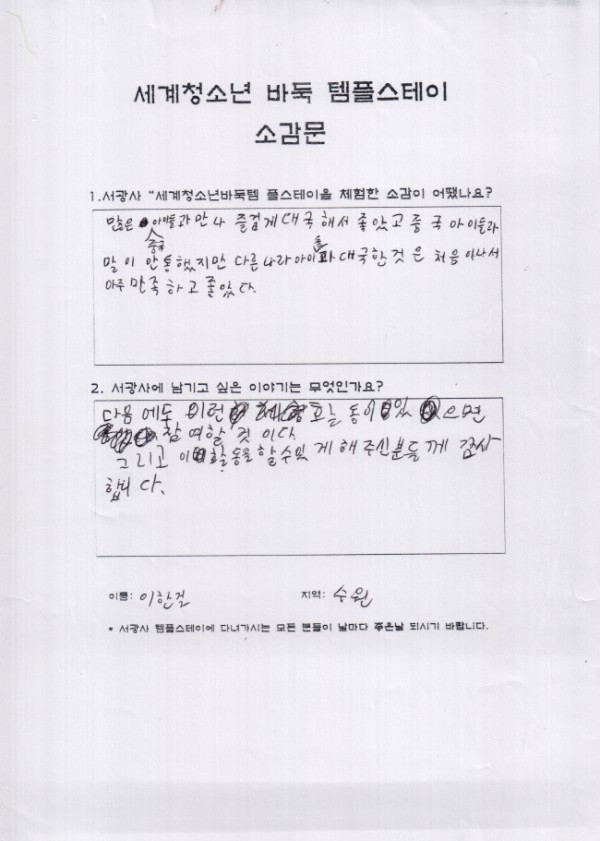 세계청소년 바둑 템플스테이
소감문
1.서광사 "세계청소년바둑템 플스테이을 체험한 소감이 어땠나요?
많은 아이들과 만나 즐겁게 대국 해서 좋았고 중국 아이들과
중국
말이 안통했지만 다른 나라 아이들과 대국한것은 처음 이나서
아주 만족하고 좋았다.
2. 서광사에 남기고 싶은 이야기는 무엇인가요?
다음에도 이런 활동이 있으면
참여할 것이다
그리고 이 활동을 할수있게 해주신분들께 감사
합니다.
이름: 이한길 지역: 수원
* 서광사 템플스테이에 다녀가시는 모든 분들이 날마다 좋은날 되시기 바랍니다.